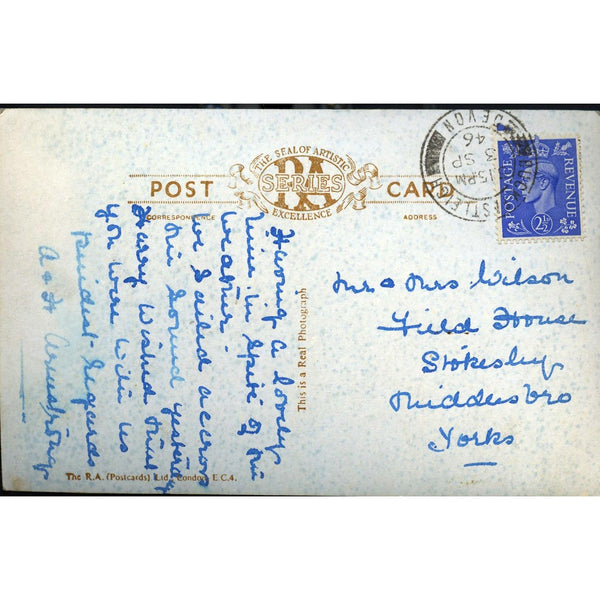 THE SEAL OF ARTISTIC
RA
SERIES
EXCELLENCE
POST CARD
CORRESPONDENCE
ADDRESS
Having a lovely
time in spite of the
weather.
We sailed across
the Sound yesterday
Harry wished that
you were with us
Kindest Regards
A & H Armstrong
This is a Real Photograph
Mr & Mrs Wilson
Field House
Stokesley
Middlesbro
Yorks
The R.A. (Postcards) Ltd. London E.C.4.
POSTAGE
REVENUE
2½
15 PM
SP
46
DEVON